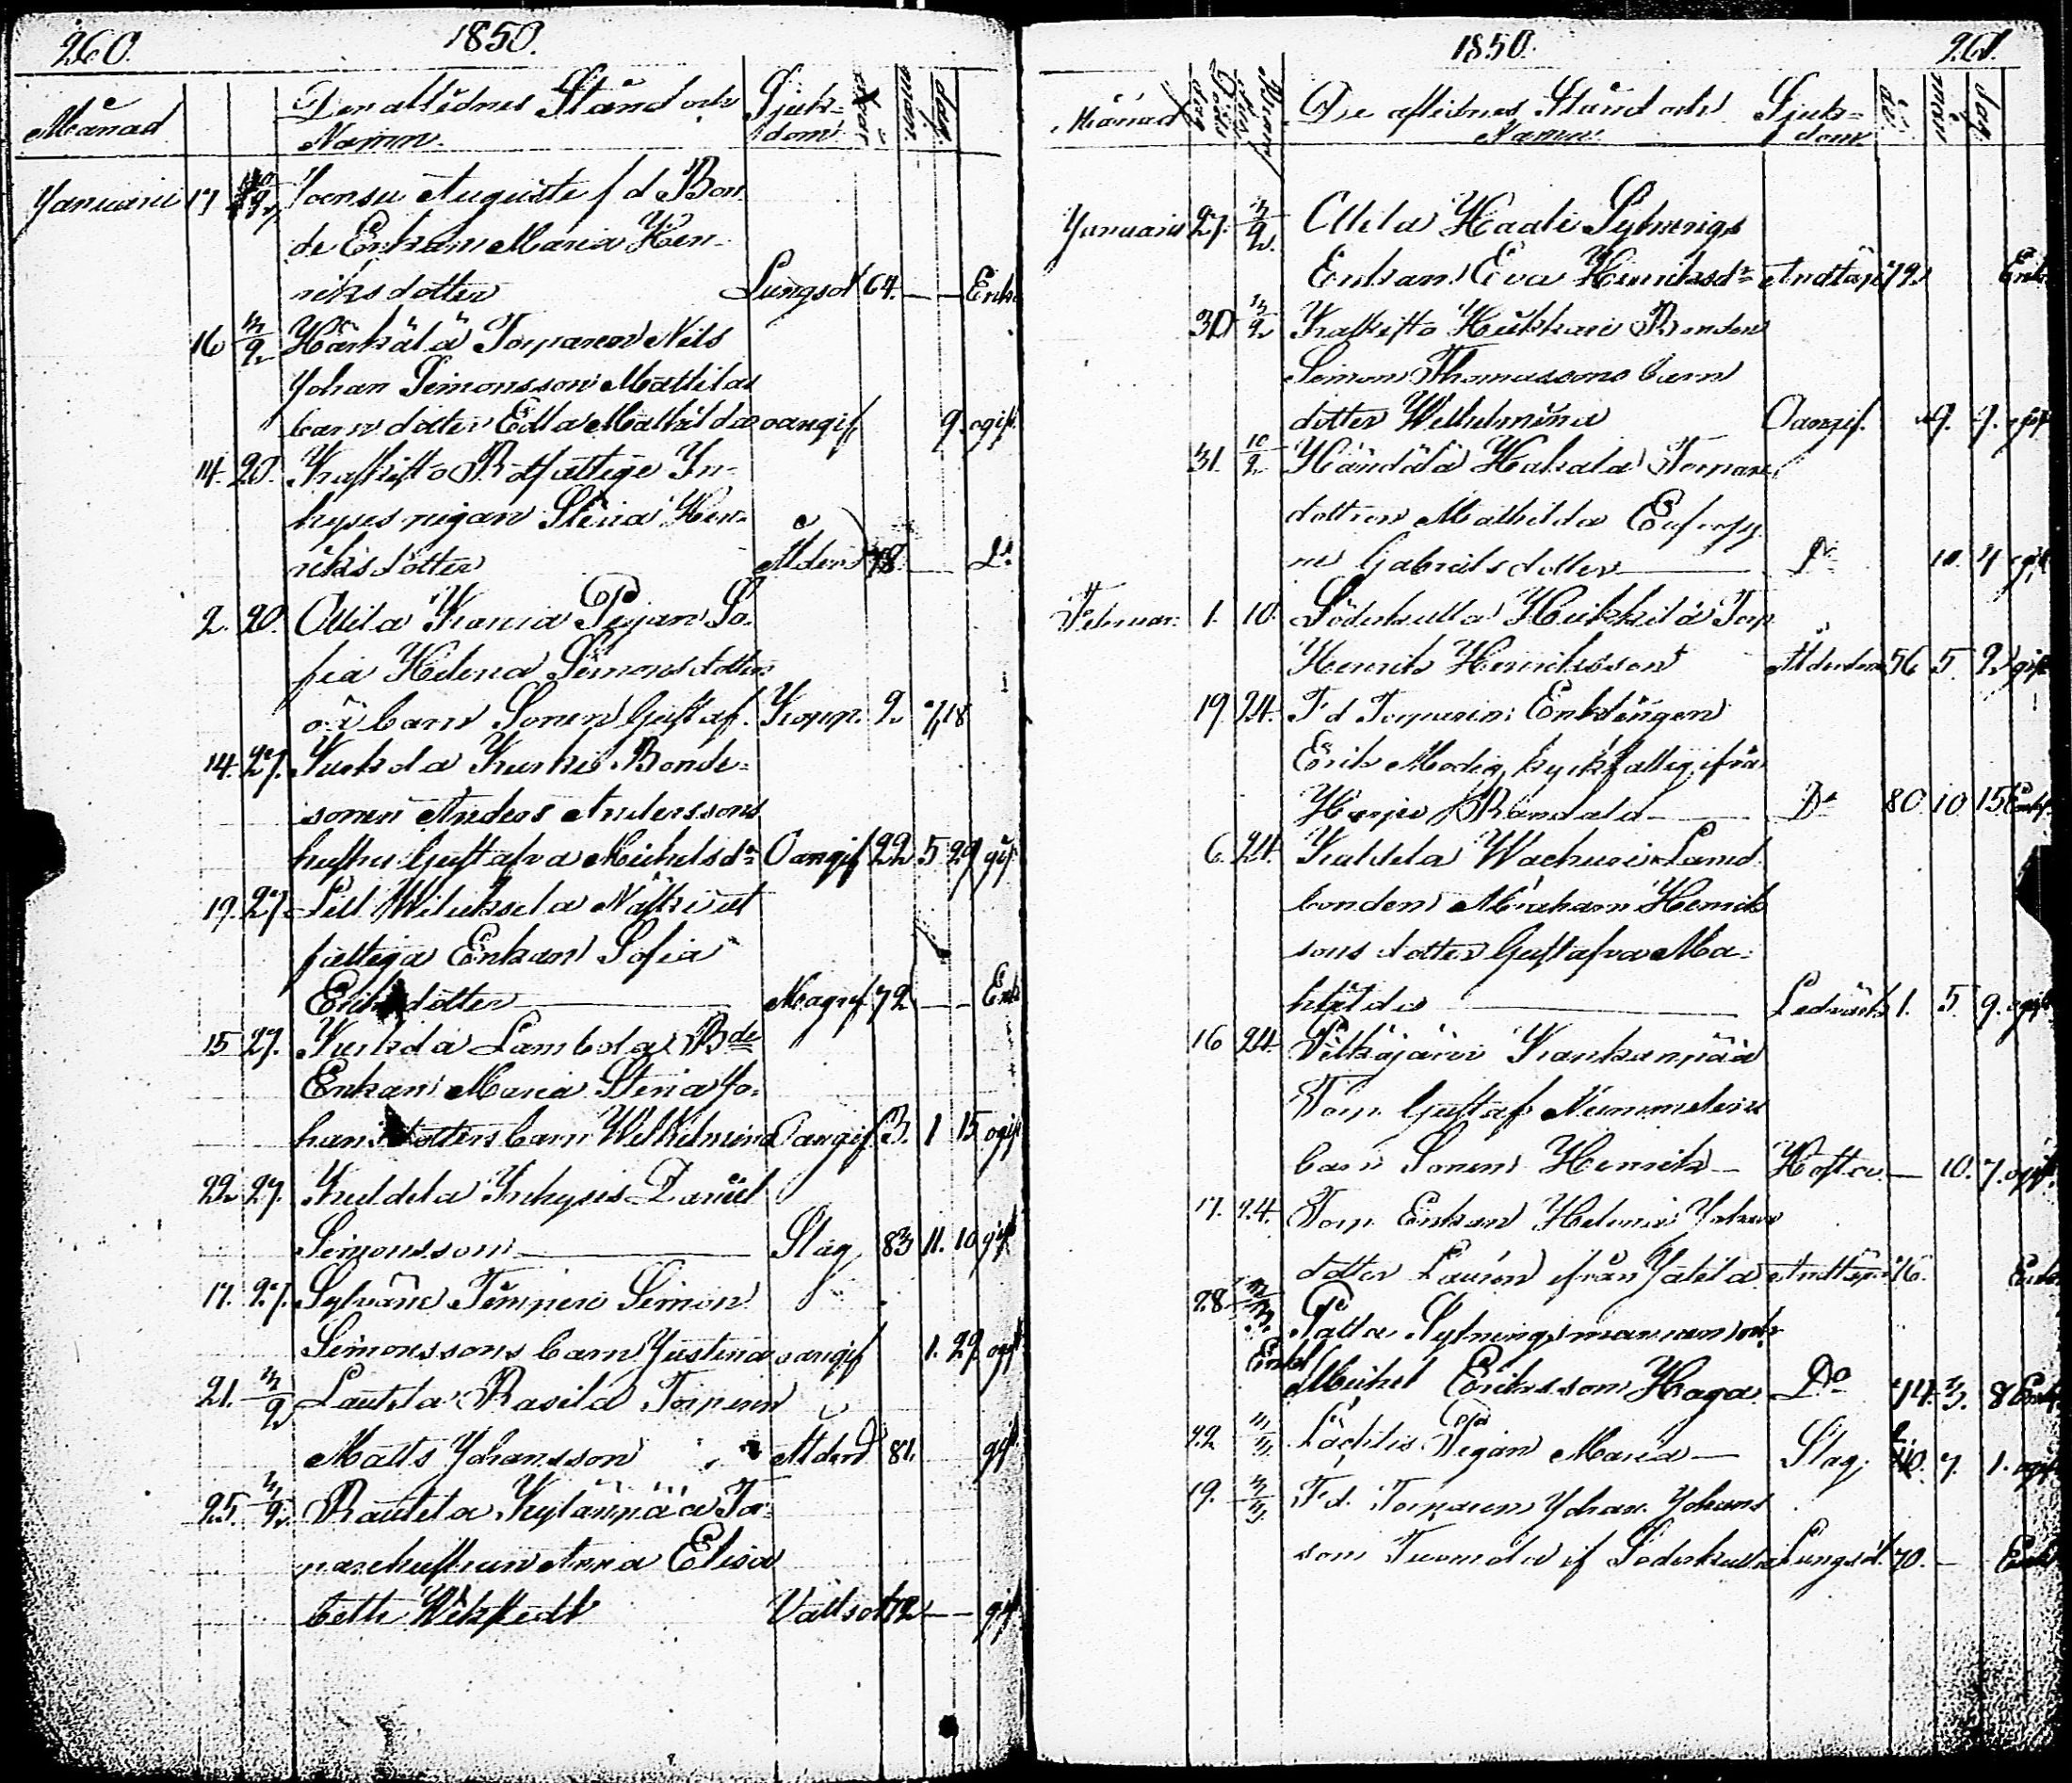 260. 1850.
Månad Den aflidnes Stånd och Sjuk- dag.
Namn. dom
Januarii 17 Joensu Auguste f d Bon
de Enkan Maria Hen-
riksdotter Lungsot 64. — — Enk
16 3/2 Härkälä Torparen Nils
Johan Simonsson Mattilas
barn dotter Edla Mathilda oangif 9. ogift
14. 20. Kaskisto Rotfattige In-
hyses pigan Stina Hen-
riksdotter Ålderd 78. — Do
2. 20. Ollila Pigan So-
fia Helena Simonsdotter
oä barn Sonen Gustaf. Kopp. 2 7 18
14. 27. Kurkela Kurki Bonde-
sonen Anders Anderssons
hustru Gustafva Michelsdr Oangif 22 5 29 gift
17. 27. Lill Wiluksela rot
fattiga Enkan Sofia
Eriksdotter — Magref 72 — — Enk
15 27. Kurkela Lambola Bde
Enkan Maria Stina Jo-
hansdotters barn Wilhelmina Oangif. 3. 1 15 ogift
22 27. Kuldela Inhyses Daniel
Simonsson — Slag 83 11. 10 gift
17. 27. Sylväne Tömperi Simon
Simonssons barn Justina oangif 1. 29. ogift
21. 3/2 Lautela Rasila Torparen
Matts Johansson Ålderd 81. gift
25. 3/2 Rautela Kylänpää To-
parehustrun Anna Elisa
beth Wikstedt Vattsot 72 — — gift
1850. 261.
Månad De aflidnes Stånd och Sjuk- år mån Dag
Namn. dom
Januarii 27. 3/2 Ollila Haali Sytnings
Enkan Eva Henriksdr Andtäpa 72 Enk
30 3/2 Kaskisto Hukkari Bonden
Simon Thomassons barn
dotter Wilhelmina Oangif. 9. 7. ogift
31. 10/2 Händälä Hakala Torpare
dottren Mathilda Eufrosy
ne Gabrielsdotter — Do 10. 4 ogift
Februar. 1. 10. Söderkulla Heikkilä Torp
Henrik Henriksson Ålderdom 56 5 2 gift
19 24. F d Torparen Enklingen
Erik Modig, kyrkfattig ifrån
Harju Randala — Do 80 10 15 Enkl.
6. 24. Kuldela Wachuri Land
bonden Abraham Henrik
sons dotter Gustafva Ma-
thilda — Ledvärk 1. 5. 9. ogift
16 24. Pitkäjärvi Kankanpää
Torp. Gustaf Nummelin
barn Sonen Henrik — Hosta — 10. 7. ogift.
17. 24. Torp. Enkan Helena Johans
dotter Laurén ifrån Jätila Andtäpa 76. Enk
28 3/3 Palla Sytningsmannen och
Enkl Michel Eriksson Haga Do 74. 3. 8 Enkl.
22 3/3 Lächtis Pigan Maria — Slag. 40. 7. 1. ogift
19. 3/3 F d. Torparen Johan Johans
son Tuomola if Söderkulla Lungsot. 70. — Enkl